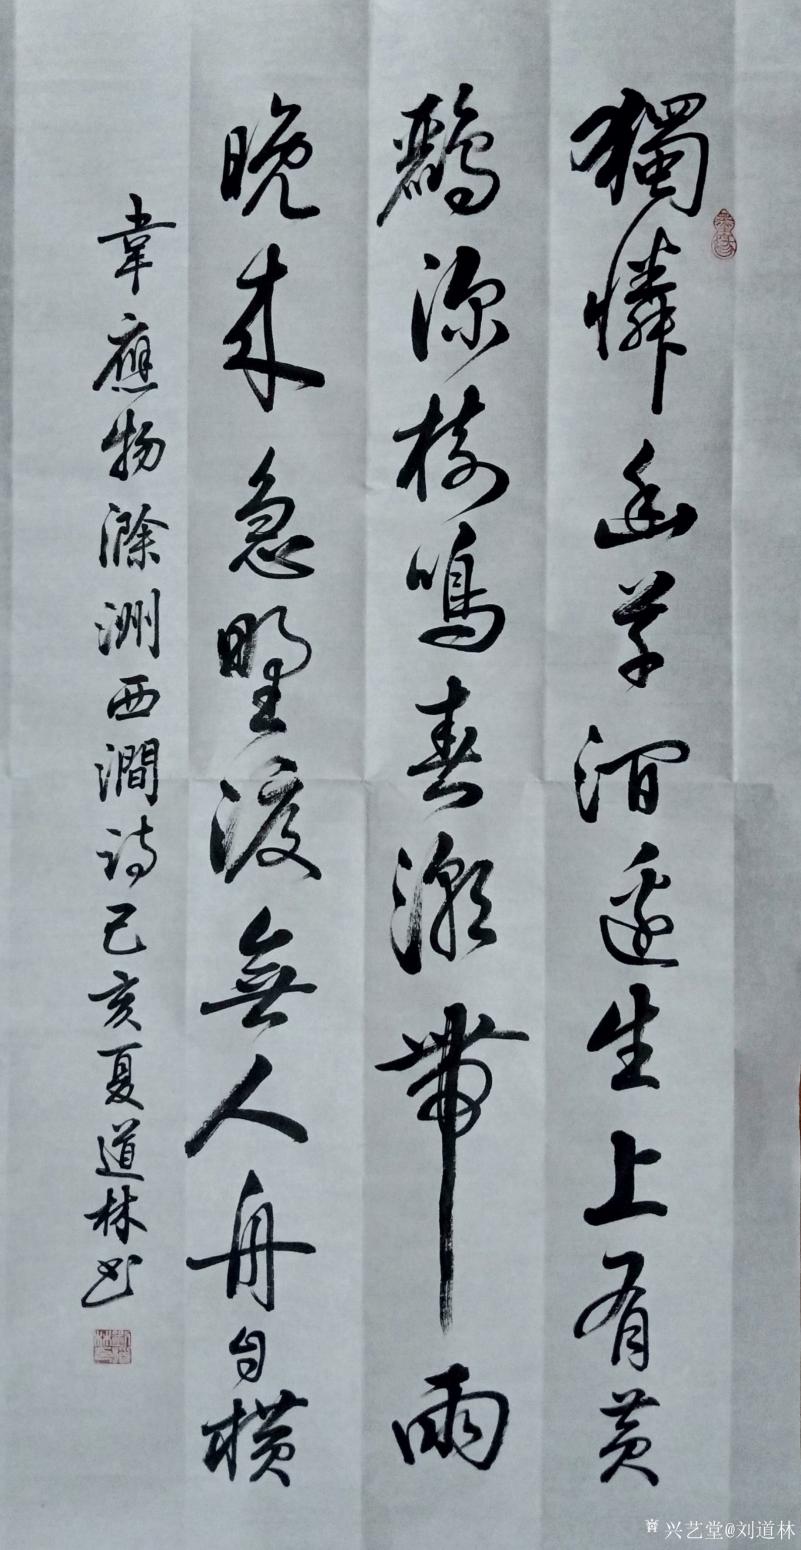 獨憐幽草澗邊生上有黃
鸝深樹鳴春潮帶雨
晚來急野渡無人舟自橫
韋應物滁洲西澗詩己亥夏道林书
兴艺堂@刘道林